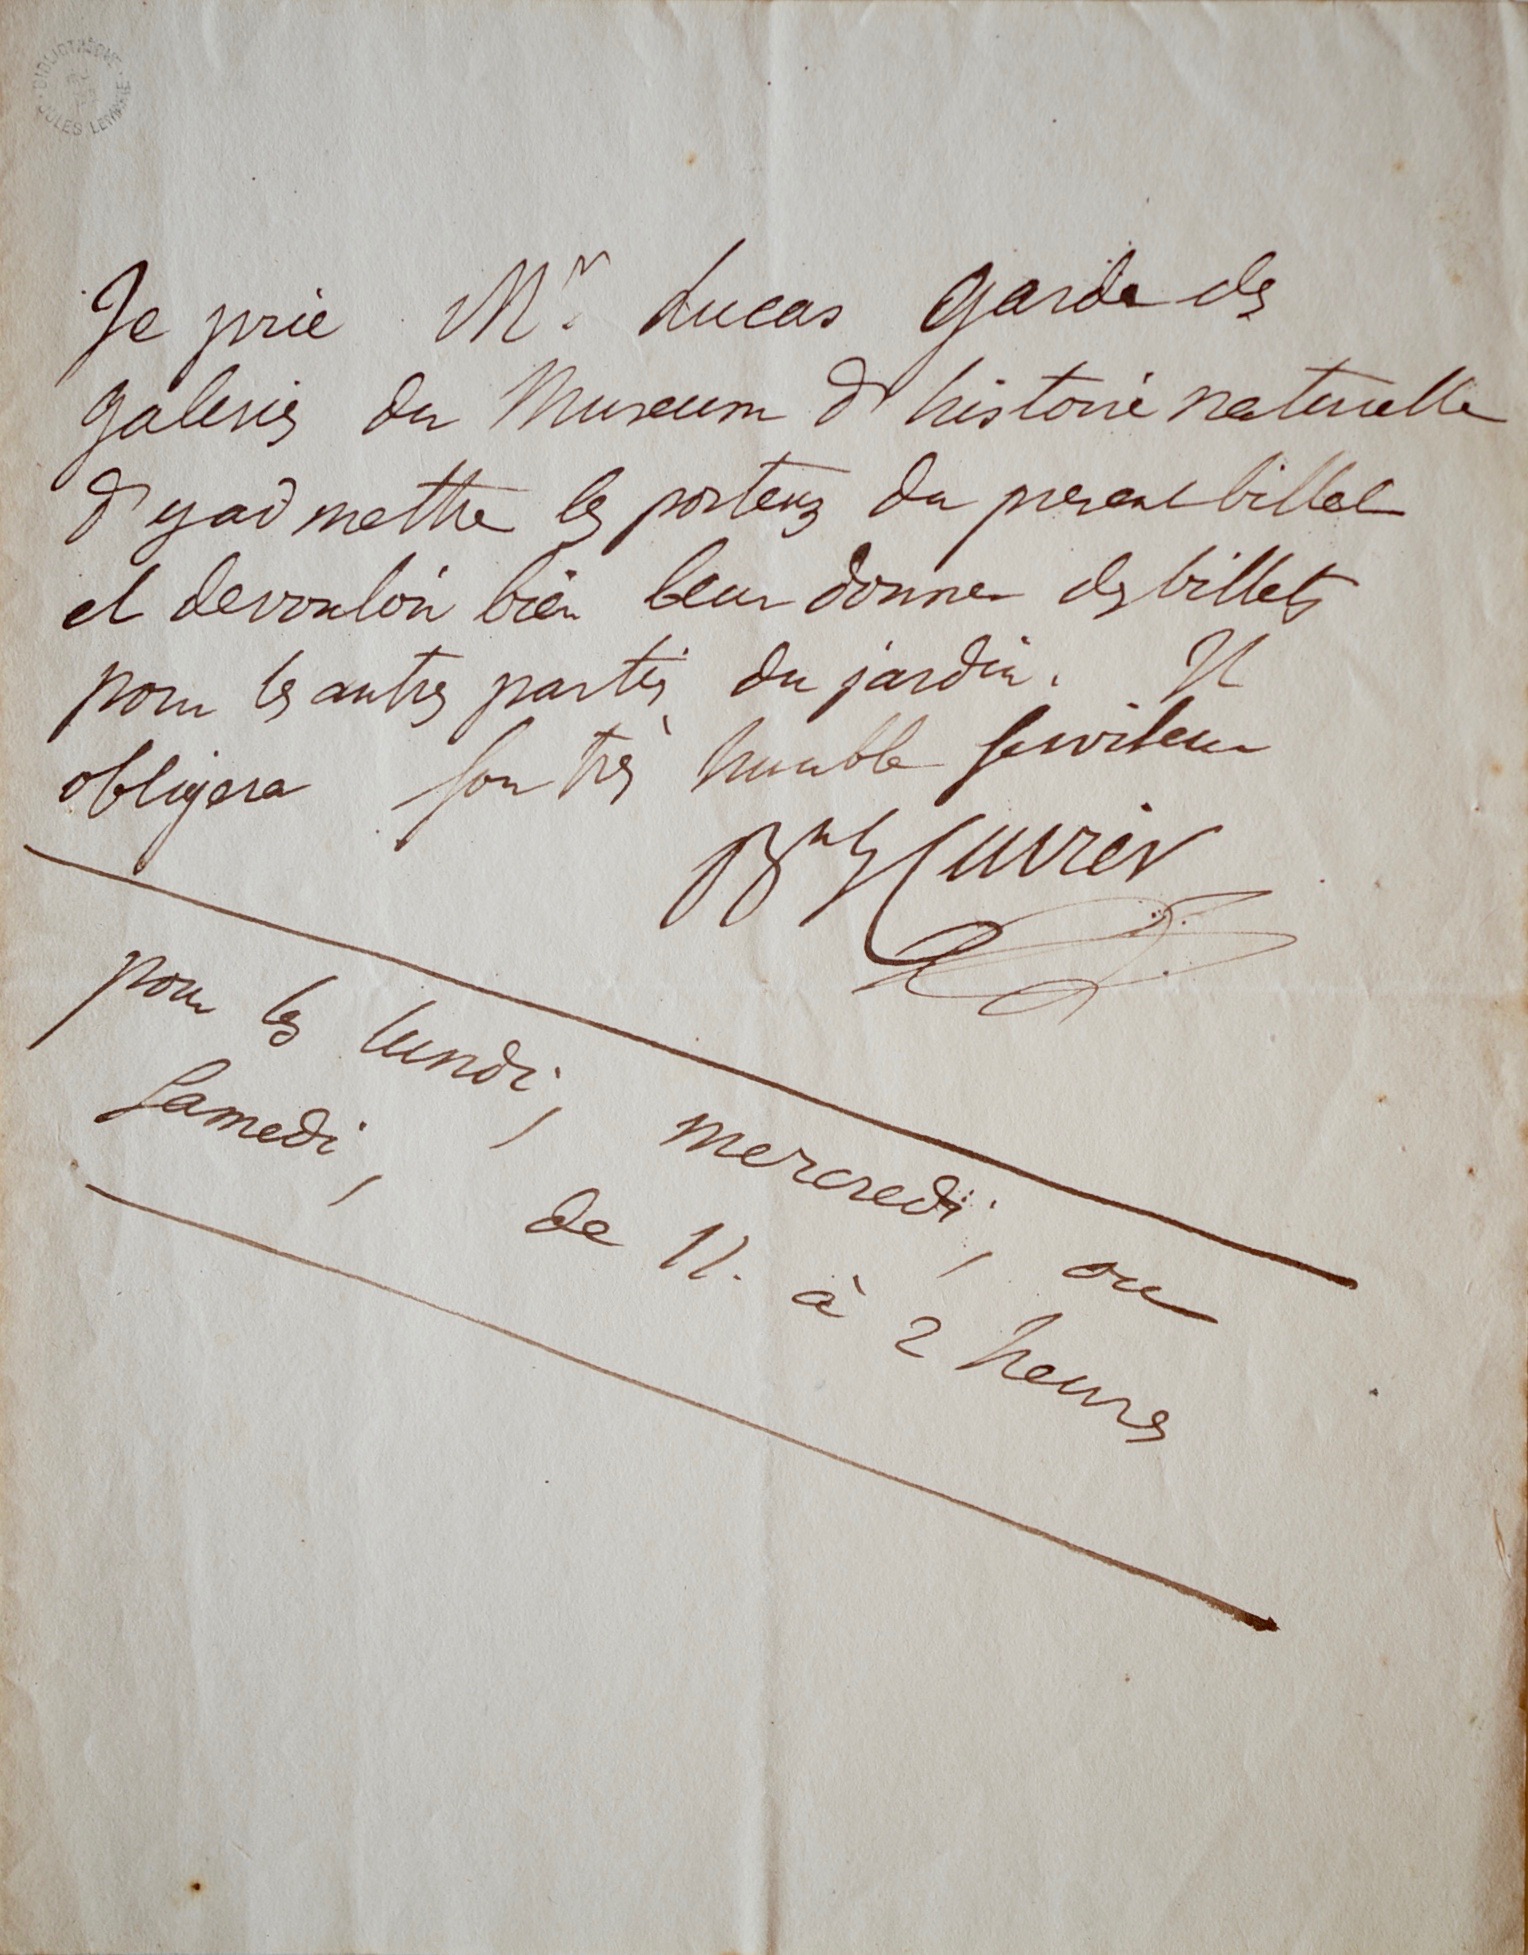 BIBLIOTHÈQUE
JULES LEMAIRE
Je prie Mr. Lucas garde des
galeries du Museum d'histoire naturelle
d'y admettre les porteurs du present billet
et de vouloir bien leur donner des billets
pour les autres parties du jardin. Il
obligera son très humble serviteur
Bn G Cuvier
pour les lundi, mercredi, ou
samedi, de 11. à 2 heures